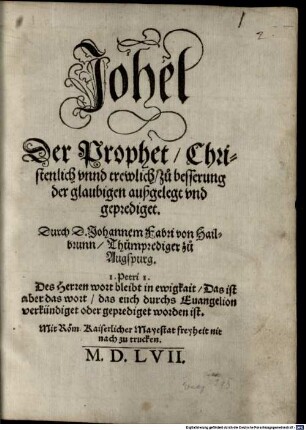 Johel
Der Prophet / Chri-
stenlich vnnd trewlich / zů besserung
der glaubigen außgelegt vnd
geprediget.
Durch D. Johannem Fabri von Hail-
brunn / Thůmprediger zů
Augspurg.
1. Petri 1.
Des Herren wort bleibt in ewigkait / Das ist
aber das wort / das euch durchs Euangelion
verkündiget oder geprediget worden ist.
Mit Röm. Kaiserlicher Mayestat freyheit nit
nach zu trucken.
M. D. LVII.